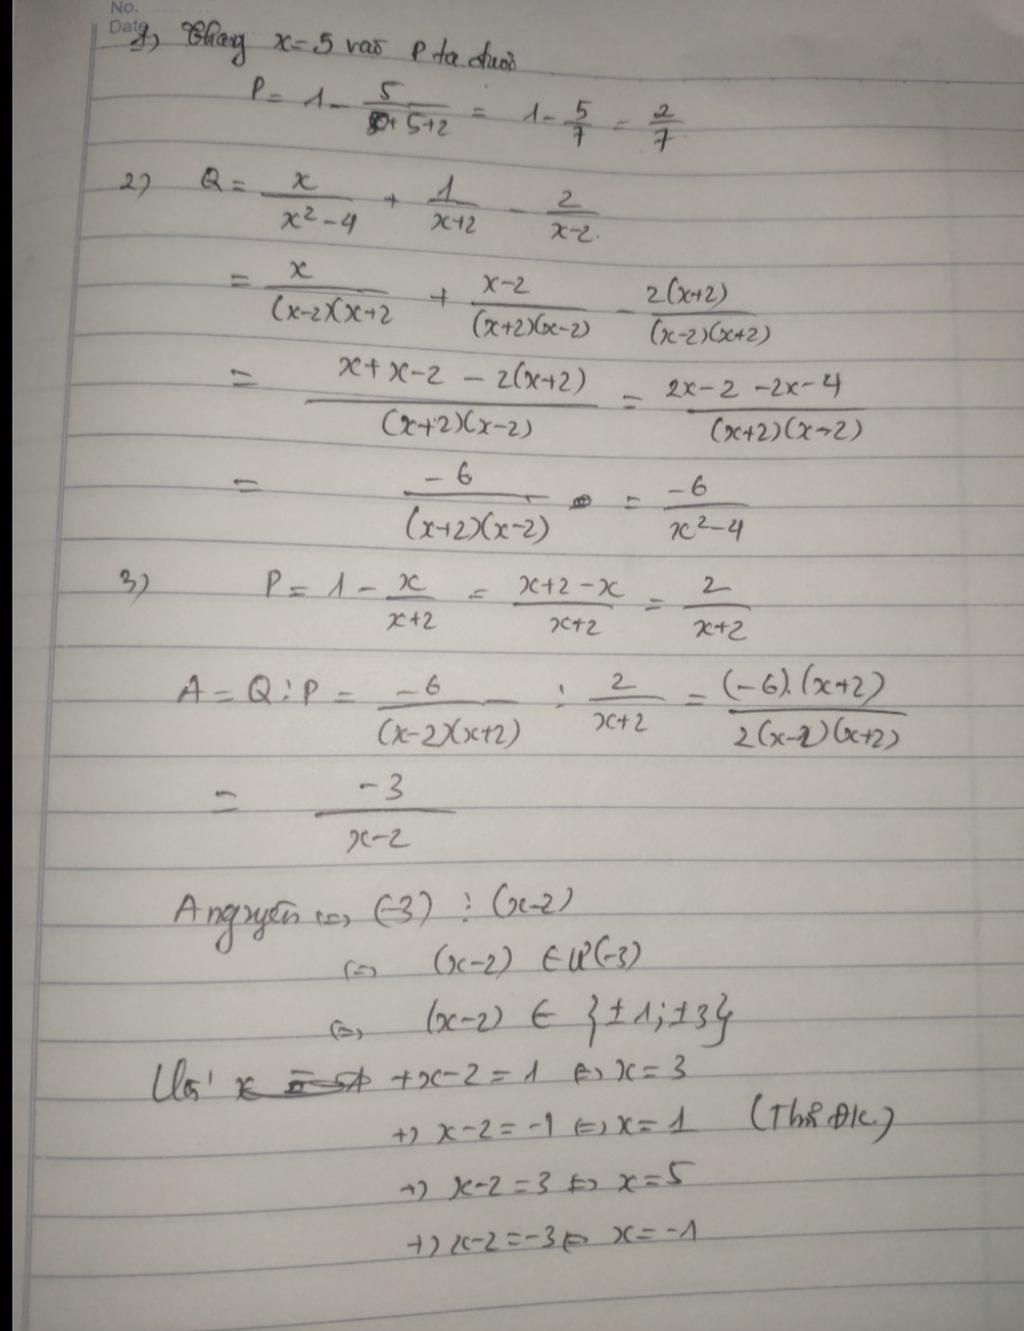 No.
Date
1) Thay x=5 vào P ta được
P = 1 - 5/(5+2) = 1 - 5/7 = 2/7
2) Q = x/(x²-4) + 1/(x+2) - 2/(x-2)
= x/((x-2)(x+2) + (x-2)/((x+2)(x-2)) - 2(x+2)/((x-2)(x+2))
= (x+x-2-2(x+2))/((x+2)(x-2)) = (2x-2-2x-4)/((x+2)(x-2))
= -6/((x+2)(x-2)) = -6/(x²-4)
3) P = 1 - x/(x+2) = (x+2-x)/(x+2) = 2/(x+2)
A = Q : P = -6/((x-2)(x+2)) : 2/(x+2) = (-6).(x+2)/(2(x-2)(x+2))
= -3/(x-2)
A nguyên ⇔ (-3) ⋮ (x-2)
⇔ (x-2) ∈ Ư(-3)
⇔ (x-2) ∈ {±1; ±3}
Với +x-2=1 ⇔ x=3
+) x-2=-1 ⇔ x=1 (Thỏa ĐK)
+) x-2=3 ⇔ x=5
+) x-2=-3 ⇔ x=-1